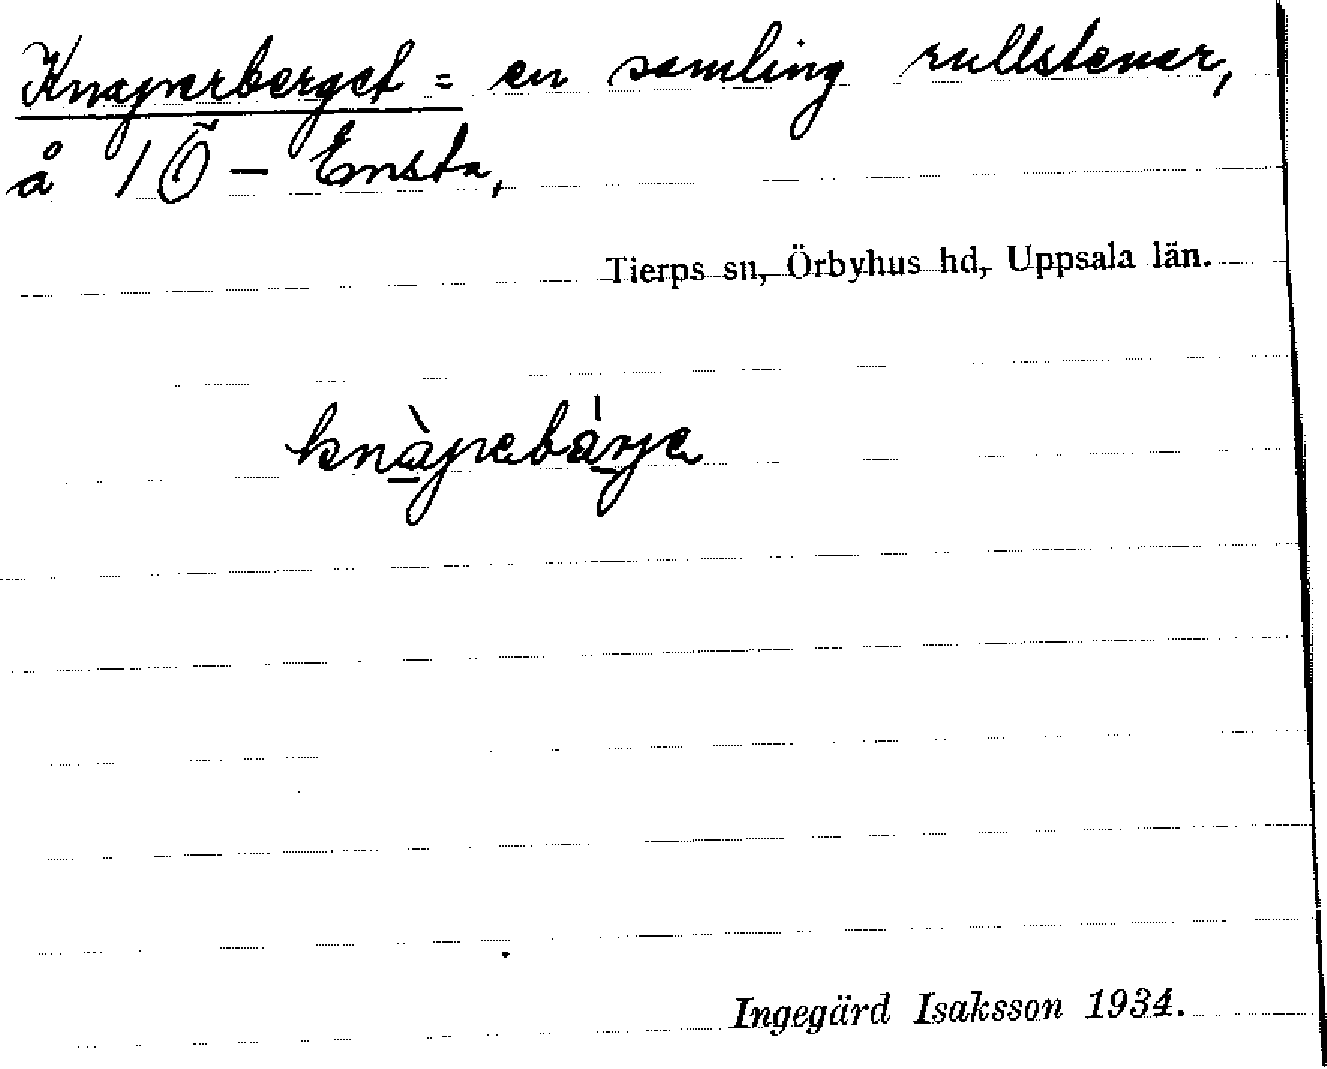 Knaperberget = en samling rullstenar,
å 1 Ö – Ensta,
Tierps sn, Örbyhus hd, Uppsala län.
knàpebárje
Ingegärd Isaksson 1934.